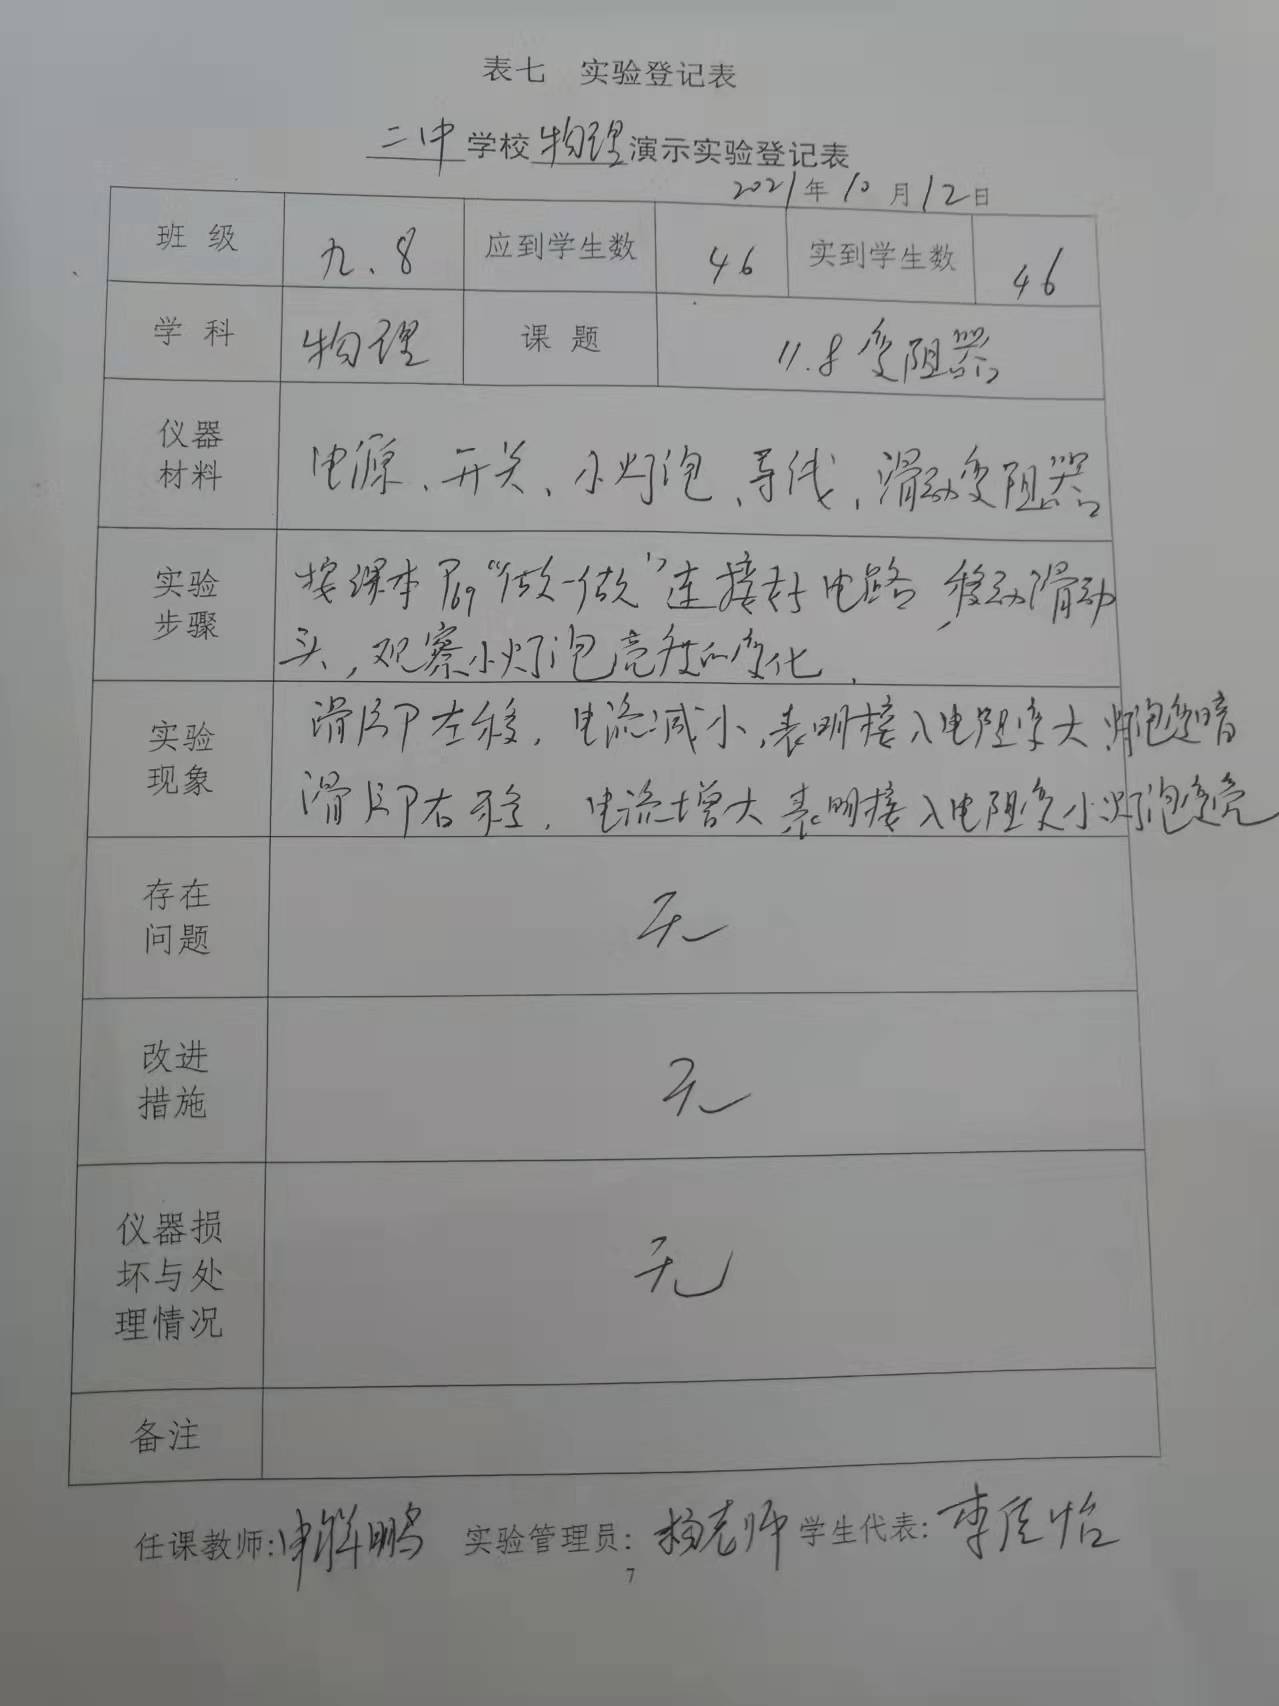 表七 实验登记表
二中学校物理演示实验登记表
2021年10月12日
班级 九.8 应到学生数 46 实到学生数 46
学科 物理 课题 11.8变阻器
仪器
材料
电源、开关、小灯泡、导线、滑动变阻器
实验
步骤
按课本P69“做一做”连接好电路,移动滑动
头,观察小灯泡亮度的变化.
实验
现象
滑片P左移,电流减小,表明接入电阻变大 灯泡变暗
滑片P右移,电流增大 表明接入电阻变小 灯泡变亮
存在
问题
无
改进
措施
无
仪器损
坏与处
理情况
无
备注
任课教师:申 鹏 实验管理员:杨老师 学生代表:李佳怡
7